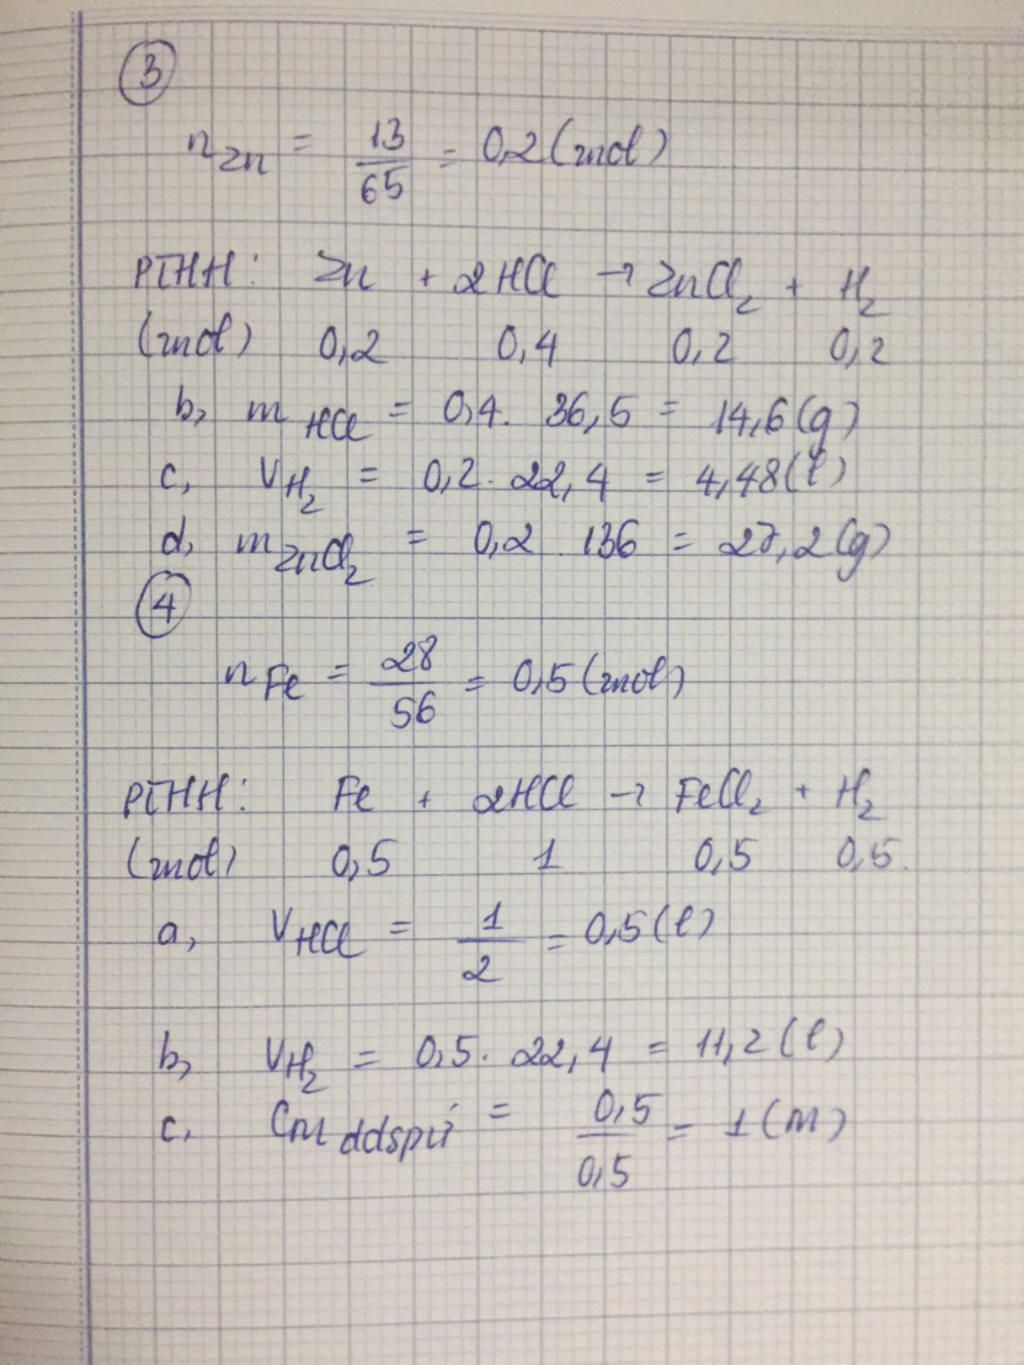 3
n Zn = 13/65 = 0,2 (mol)
PTHH: Zn + 2HCl → ZnCl₂ + H₂
(mol) 0,2 0,4 0,2 0,2
b, m HCl = 0,4. 36,5 = 14,6 (g)
c, V H₂ = 0,2. 22,4 = 4,48 (l)
d, m ZnCl₂ = 0,2 . 136 = 27,2 (g)
4
n Fe = 28/56 = 0,5 (mol)
PTHH: Fe + 2HCl → FeCl₂ + H₂
(mol) 0,5 1 0,5 0,5.
a, V HCl = 1/2 = 0,5 (l)
b, V H₂ = 0,5. 22,4 = 11,2 (l)
c, CM ddspứ = 0,5/0,5 = 1 (M)